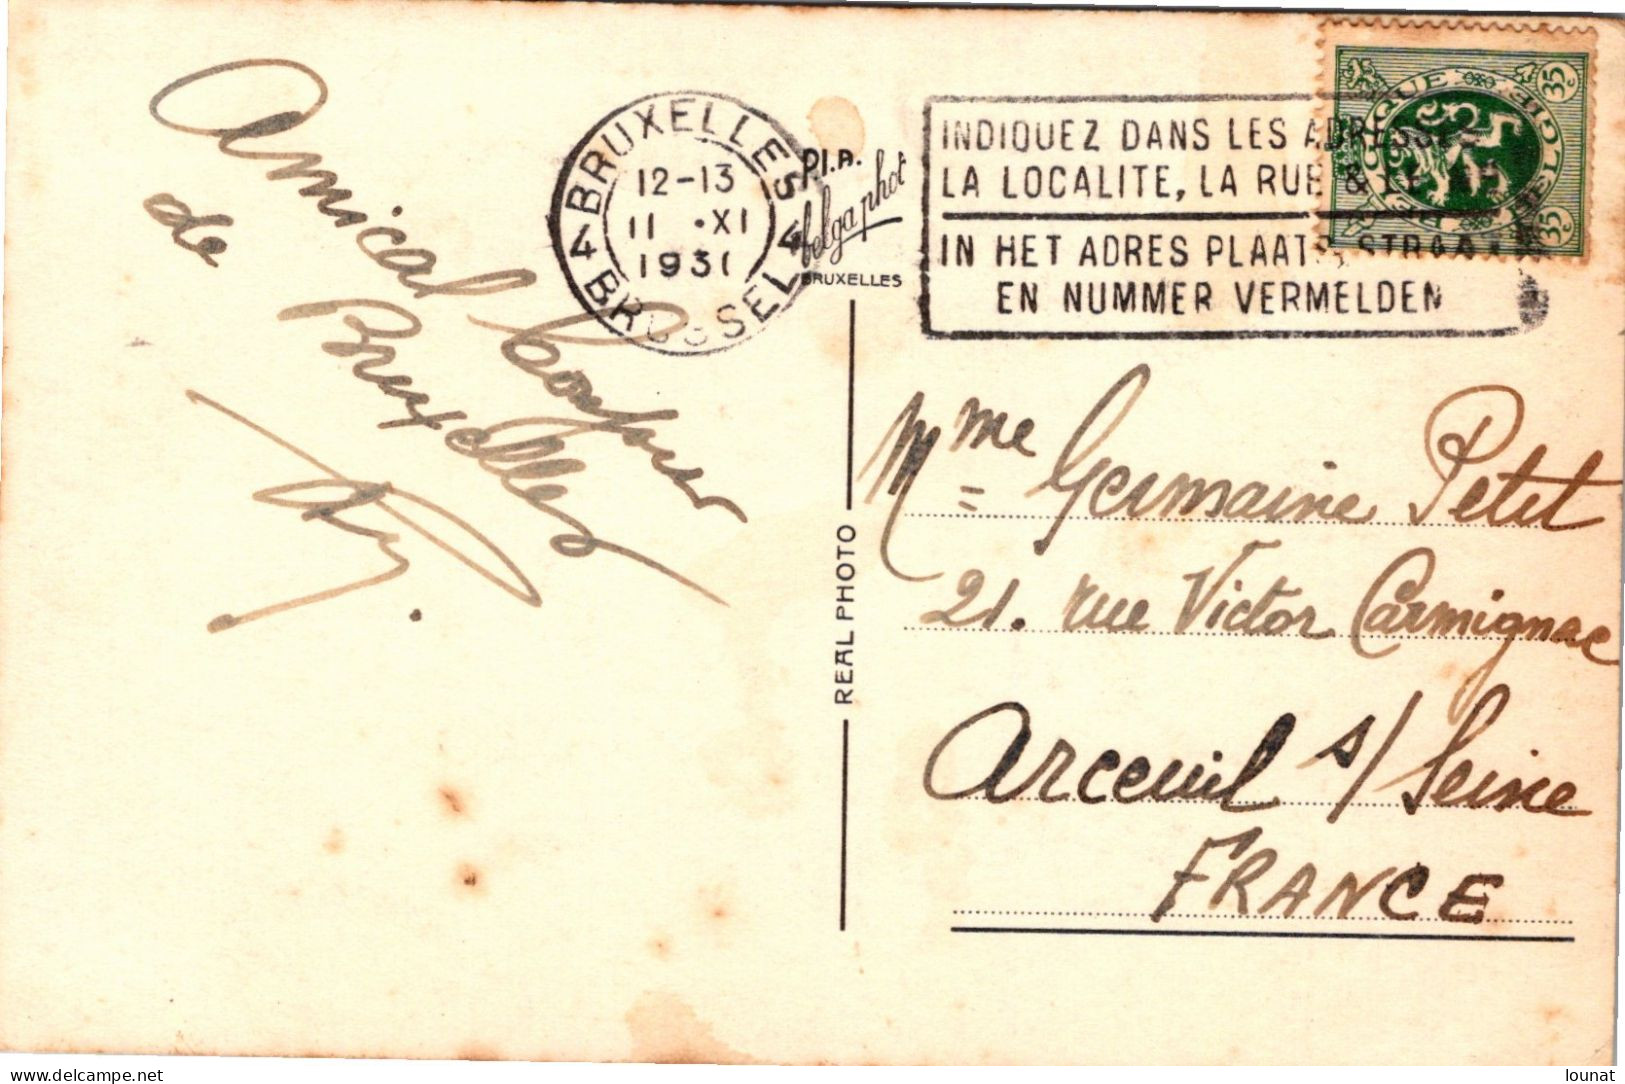 Amical bonjour
de Bruxelles
BRUXELLES
12-13
11 •XI
1931
4 4
BRUSSEL
P.I.B.
belga phot
BRUXELLES
INDIQUEZ DANS LES ADRESSES
LA LOCALITE, LA RUE & LE Nº
IN HET ADRES PLAATS, STRAAT
EN NUMMER VERMELDEN
35c
35c
BELGIQUE
BELGIË
REAL PHOTO
Mme Germaine Petit
21. rue Victor Carmignac
Arceuil s/ Seine
FRANCE
Delcampe.net
lounat